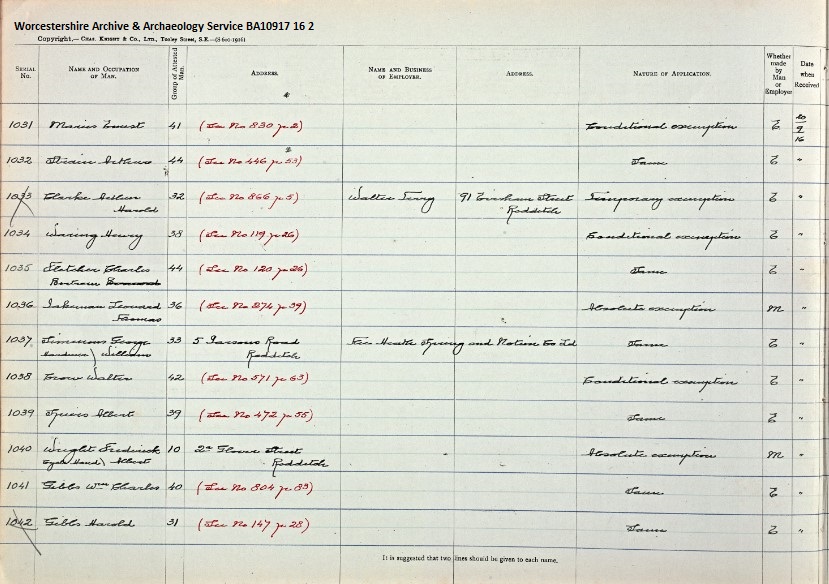 Worcestershire Archive & Archaeology Service BA10917 16 2
Copyright.—Chas. Knight & Co., Ltd., Tooley Street, S.E.
Serial No. Name and Occupation of Man. Group of Attested Man. Address. Name and Business of Employer. Address. Nature of Application. Whether made by Man or Employer Date when Received
1031 Ernest 41 (See No 830 p 2) Conditional exemption E 20/9/16
1032 44 (See No 446 p 53) Same E "
1033 Clarke Arthur Harold 32 (See No 866 p 5) Walter Terry 91 Evesham Street Redditch Temporary exemption E "
1034 Waring Henry 38 (See No 119 p 26) Conditional exemption E "
1035 Fletcher Charles Bertram 44 (See No 120 p 26) Same E "
1036 Leonard Thomas 36 (See No 274 p 39) Absolute exemption M "
1037 Simmons George William 33 5 Parsons Road Redditch Heath Spring and Notion Co Ltd Same E "
1038 Walter 42 (See No 571 p 63) Conditional exemption E "
1039 Albert 39 (See No 472 p 55) Same E "
1040 Wright Frederick Albert 10 Glover Street Redditch Absolute exemption M "
1041 Gibbs Wm Charles 40 (See No 804 p 83) Same E "
1042 Gibbs Harold 31 (See No 147 p 28) Same E "
It is suggested that two lines should be given to each name.